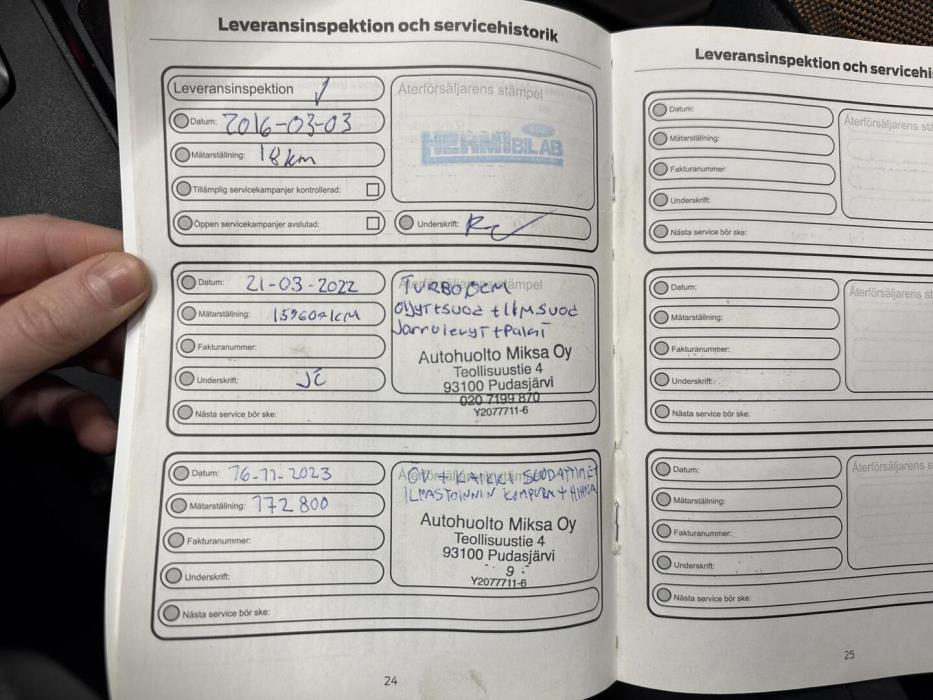 Leveransinspektion och servicehistorik
Leveransinspektion ✓
Återförsäljarens stämpel
Datum: 2016-03-03
HERMI BIL AB
Mätarställning: 18 km
Tillämplig servicekampanjer kontrollerad:
Öppen servicekampanjer avslutad:
Underskrift:
Datum: 21-03-2022
TURBO
Mätarställning: km
öljyt+suod + ilm.suod
Fakturanummer:
Jarrulevyt+palat
Underskrift:
Autohuolto Miksa Oy
Teollisuustie 4
93100 Pudasjärvi
020 7199 870
Y2077711-6
Nästa service bör ske:
Datum: 16-11-2023
ÖV + KAIKKI SUODATTIMET
Mätarställning: 172 800
ILMASTOINNIN KOMPURA + HIHNA
Fakturanummer:
Autohuolto Miksa Oy
Teollisuustie 4
93100 Pudasjärvi
9
Underskrift:
Y2077711-6
Nästa service bör ske:
24
Leveransinspektion och servicehi
Datum:
Återförsäljarens st
Mätarställning:
Fakturanummer:
Underskrift:
Nästa service bör ske:
Datum:
Återförsäljarens st
Mätarställning:
Fakturanummer:
Underskrift:
Nästa service bör ske:
Datum:
Återförsäljarens s
Mätarställning:
Fakturanummer:
Underskrift:
Nästa service bör ske:
25